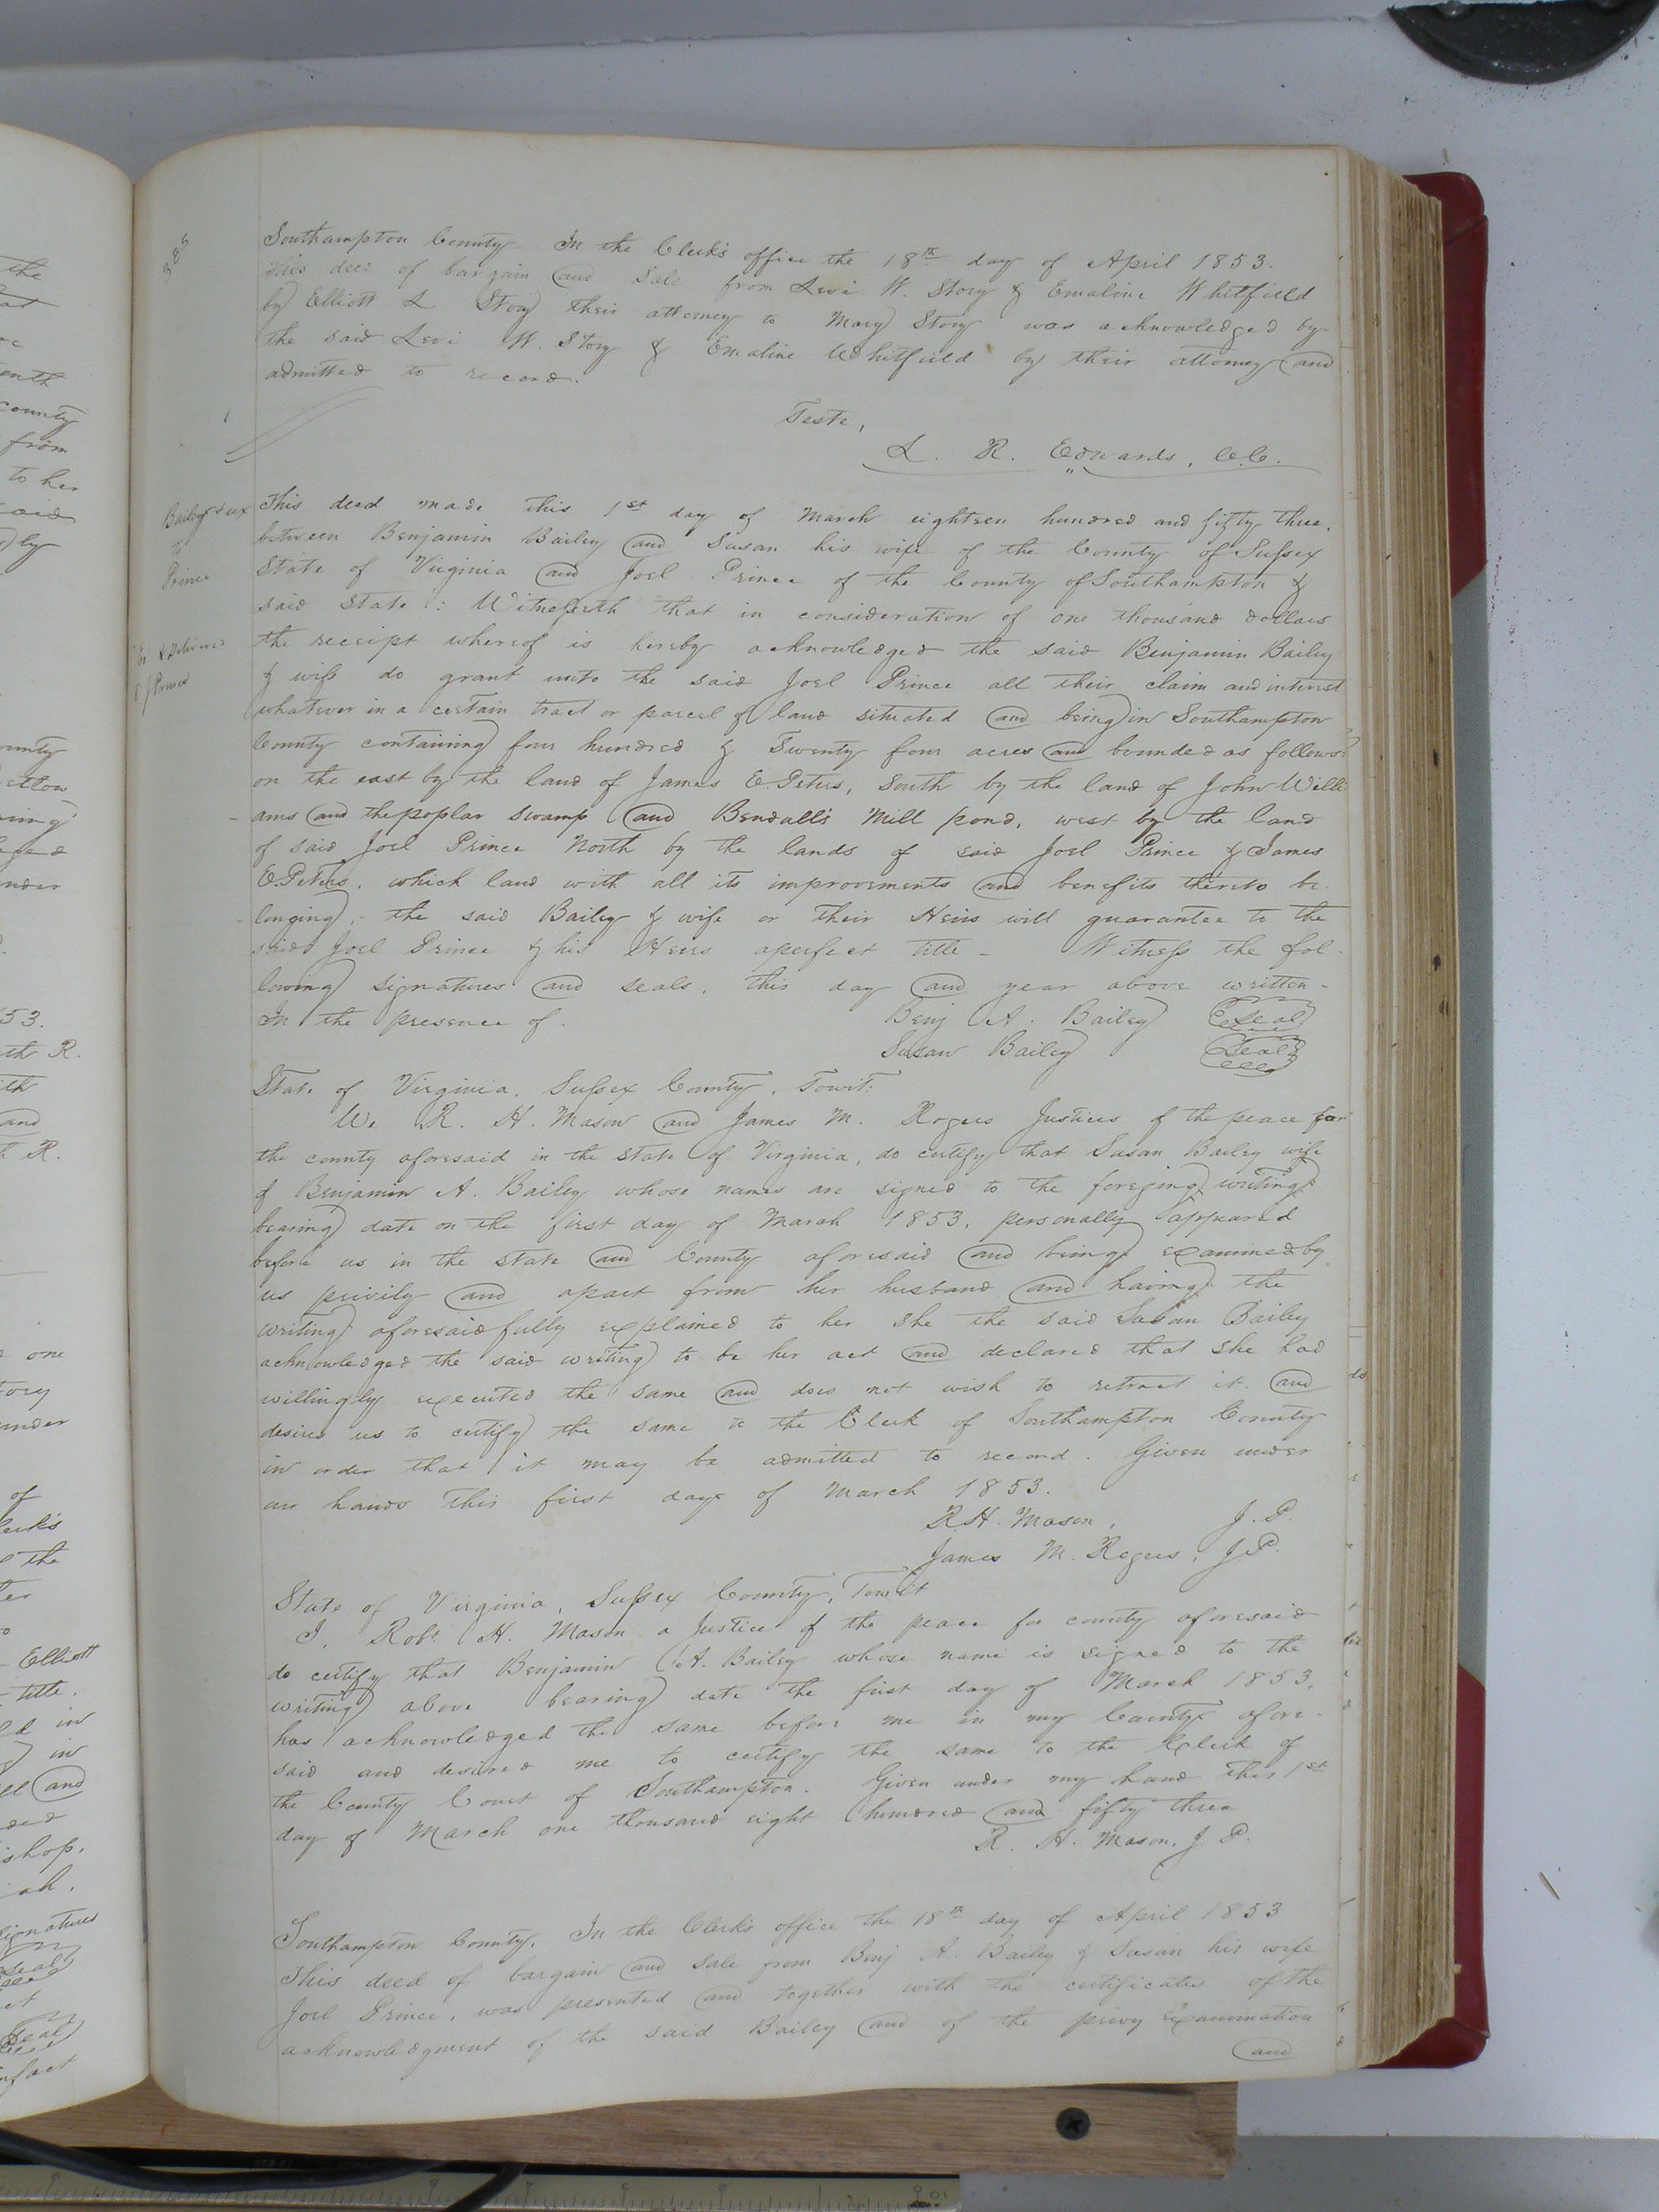 385
Southampton County - In the Clerk's office the 18th day of April 1853.
This deed of bargain and sale from Levi W. Story & Emaline Whitfield
by Elliott L Story their attorney to Mary Story was acknowledged by
the said Levi W. Story & Emaline Whitfield by their attorney and
admitted to record.
Teste,
L. R. Edwards, C.C.
Bailey & ux
to
Prince
This deed made this 1st day of March eighteen hundred and fifty three,
between Benjamin Bailey and Susan his wife of the County of Sussex
State of Virginia and Joel Prince of the County of Southampton &
said State: Witnesseth that in consideration of one thousand dollars
the receipt whereof is hereby acknowledged the said Benjamin Bailey
& wife do grant unto the said Joel Prince all their claim and interest
whatever in a certain tract or parcel of land situated and being in Southampton
County containing four hundred & Twenty four acres and bounded as follows:
on the east by the land of James E. Peters, South by the land of John Willi
- ams and the poplar swamp and Bendall's Mill pond, west by the land
of said Joel Prince North by the lands of said Joel Prince & James
E. Peters, which land with all its improvements and benefits thereto be-
- longing, - the said Bailey & wife or their Heirs will guarantee to the
said Joel Prince & his Heirs a perfect title - Witness the fol-
lowing signatures and seals, this day and year above written -
In the presence of. Benj A. Bailey Seal
Susan Bailey Seal
State of Virginia, Sussex County, Towit:
We R. H. Mason and James M. Rogers Justices of the peace for
the county aforesaid in the state of Virginia, do certify that Susan Bailey wife
of Benjamin A. Bailey whose names are signed to the foregoing writing
bearing date on the first day of March 1853, personally appeared
before us in the state and County aforesaid and being examined by
us privily and apart from her husband and having the
writing aforesaid fully explained to her she the said Susan Bailey
acknowledged the said writing to be her act and declared that she had
willingly executed the same and does not wish to retract it and
desires us to certify the same to the Clerk of Southampton County
in order that it may be admitted to record. Given under
our hands this first day of March 1853.
R. H. Mason, J. P.
James M. Rogers, J. P.
State of Virginia, Sussex County, Towit
I, Robt H. Mason a Justice of the peace for county aforesaid
do certify that Benjamin A. Bailey whose name is signed to the
writing above bearing date the first day of March 1853,
has acknowledged the same before me in my County afore-
said and desired me to certify the same to the Clerk of
the County Court of Southampton. Given under my hand this 1st
day of March one thousand eight hundred and fifty three
R. H. Mason, J. P.
Southampton County, In the Clerk's office the 18th day of April 1853
This deed of bargain and sale from Benj A. Bailey & Susan his wife
Joel Prince, was presented and together with the certificates of the
acknowledgment of the said Bailey and of the privy Examination
and